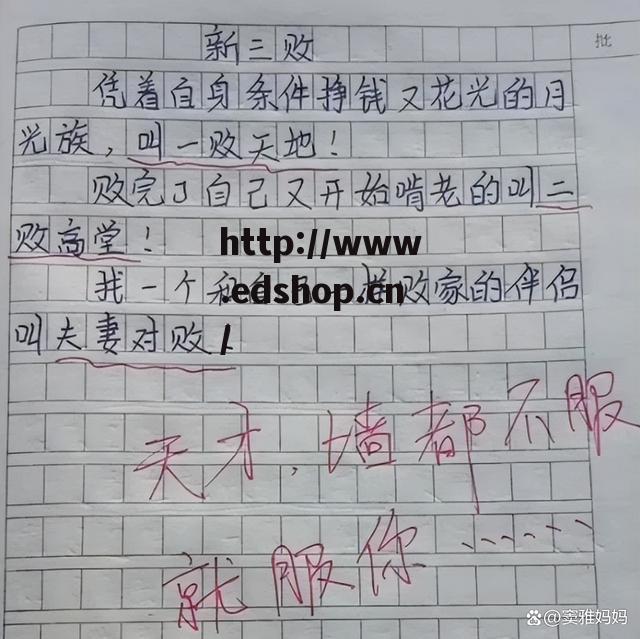 批
新三败
凭着自身条件挣钱又花光的月
光族，叫一败天地！
败完了自己又开始啃老的叫二
败高堂！
找一个和
样败家的伴侣
叫夫妻对败！
http://www
.edshop.cn
/
天才，墙都不服
就服你……
百家号/窦雅妈妈